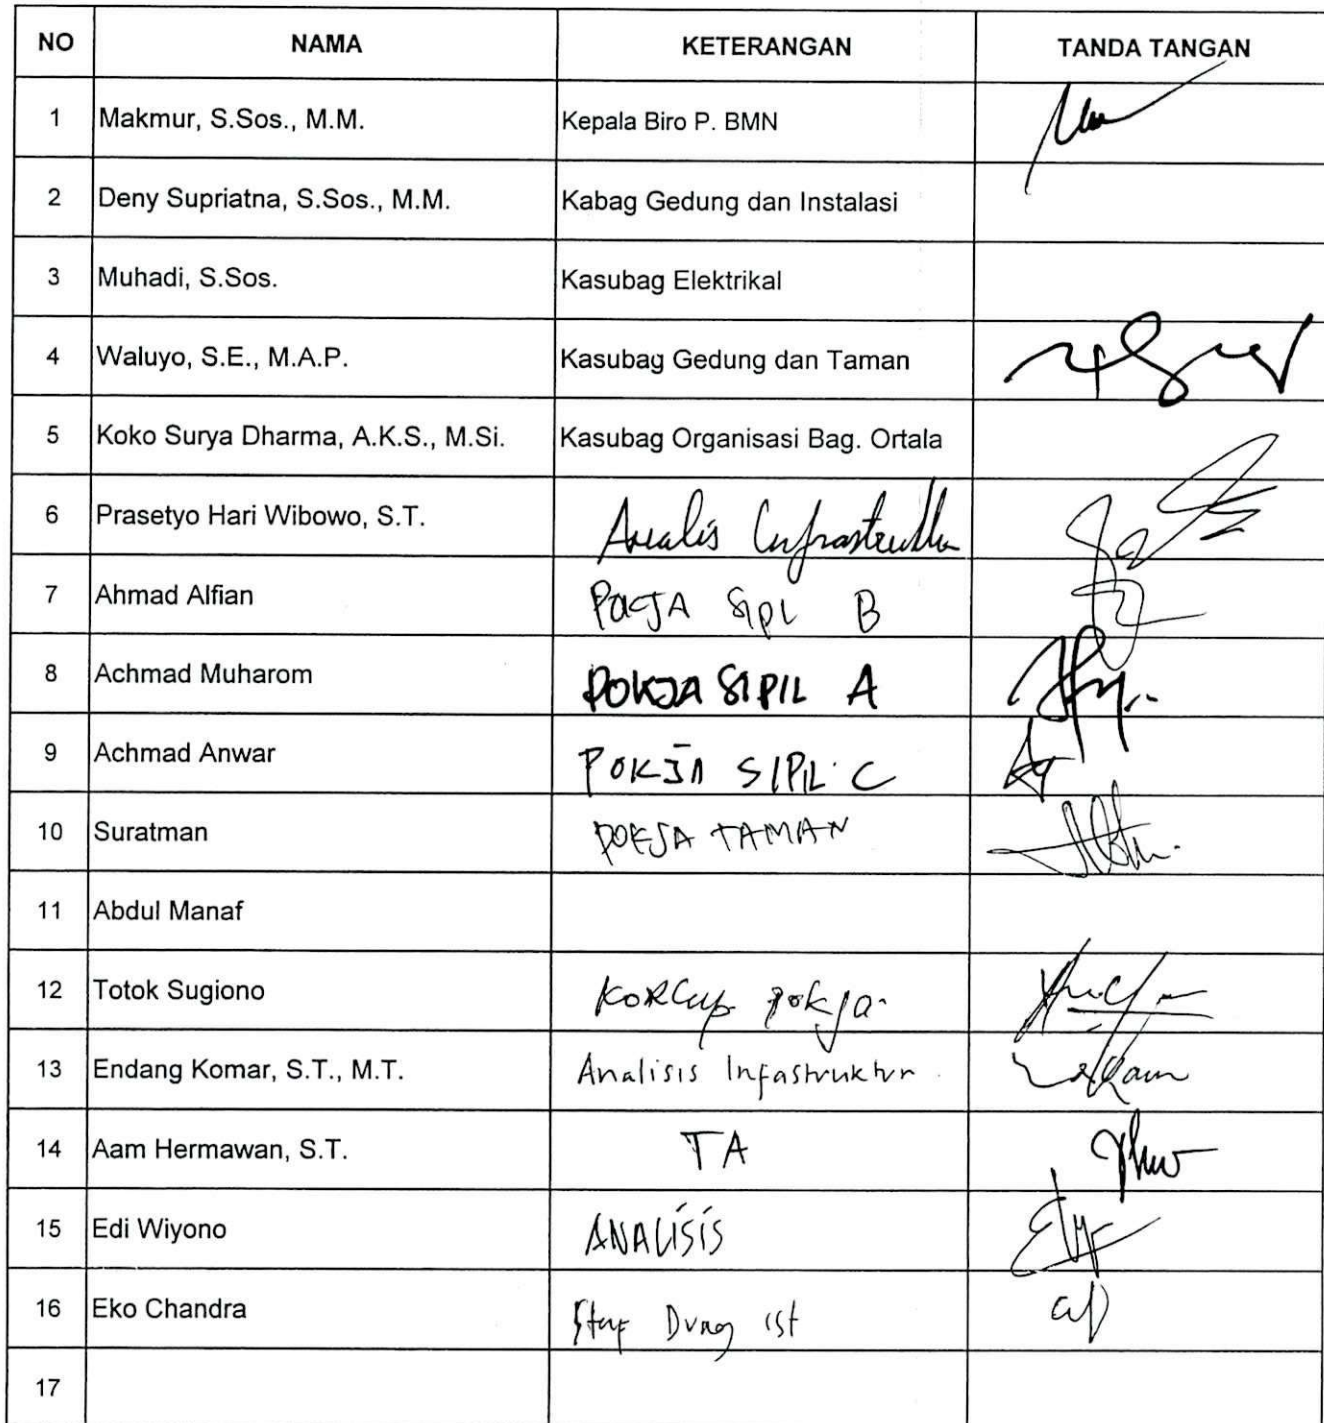 NO NAMA KETERANGAN TANDA TANGAN
1 Makmur, S.Sos., M.M. Kepala Biro P. BMN
2 Deny Supriatna, S.Sos., M.M. Kabag Gedung dan Instalasi
3 Muhadi, S.Sos. Kasubag Elektrikal
4 Waluyo, S.E., M.A.P. Kasubag Gedung dan Taman
5 Koko Surya Dharma, A.K.S., M.Si. Kasubag Organisasi Bag. Ortala
6 Prasetyo Hari Wibowo, S.T. Analis
7 Ahmad Alfian B
8 Achmad Muharom POKJA SIPIL A
9 Achmad Anwar POKJA SIPIL C
10 Suratman POKJA TAMAN
11 Abdul Manaf
12 Totok Sugiono pokja
13 Endang Komar, S.T., M.T. Analisis Infastruktur
14 Aam Hermawan, S.T. TA
15 Edi Wiyono ANALISIS
16 Eko Chandra
17